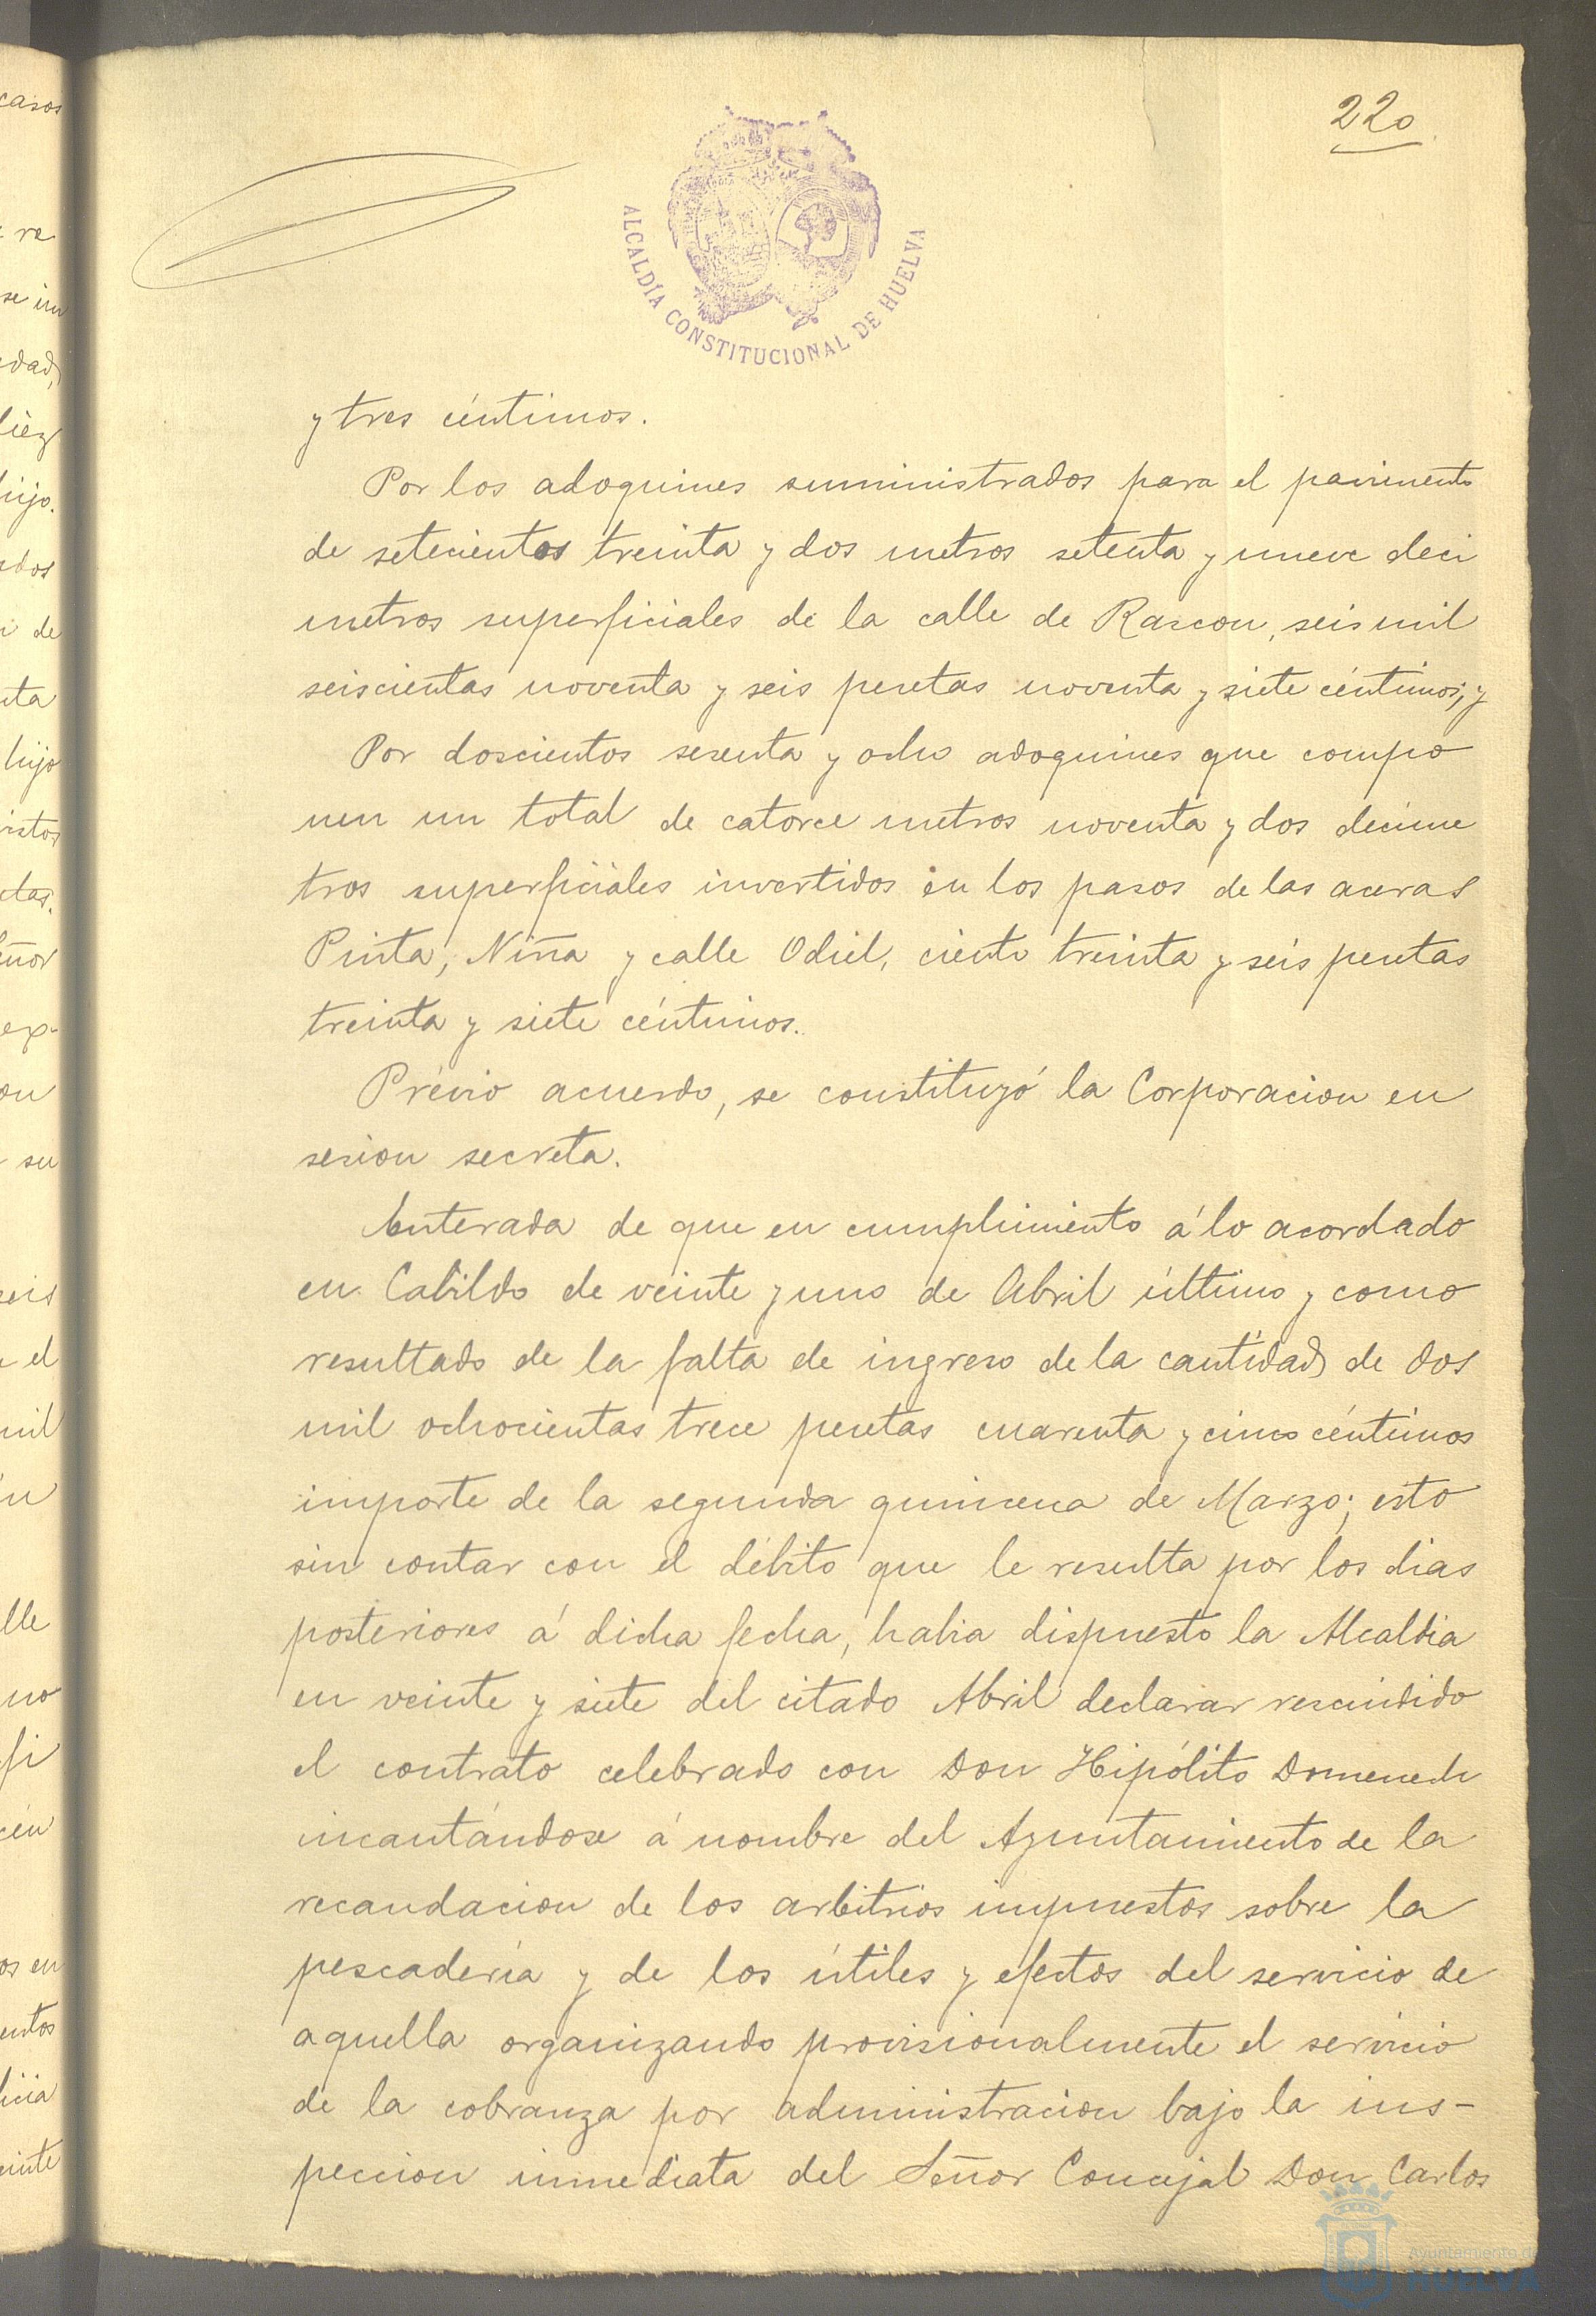 220
ALCALDÍA CONSTITUCIONAL DE HUELVA
y tres céntimos.
Por los adoquines suministrados para el pavimento
de setecientos treinta y dos metros setenta y nueve deci
metros superficiales de la calle de Rascon, seis mil
seiscientas noventa y seis pesetas noventa y siete céntimos; y
Por doscientos sesenta y ocho adoquines que compo
nen un total de catorce metros noventa y dos décime
tros superficiales invertidos en los pasos de las aceras
Pinta, Niña y calle Odiel, ciento treinta y seis pesetas
treinta y siete céntimos.
Prévio acuerdo, se constituyó la Corporacion en
sesion secreta.
Enterada de que en cumplimiento á lo acordado
en Cabildo de veinte y uno de Abril último y como
resultado de la falta de ingreso de la cantidad de dos
mil ochocientas trece pesetas cuarenta y cinco céntimos
importe de la segunda quincena de Marzo; esto
sin contar con el débito que le resulta por los dias
posteriores á dicha fecha, habia dispuesto la Alcaldia
en veinte y siete del citado Abril declarar rescindido
el contrato celebrado con Don Hipólito Domenech
incautándose á nombre del Ayuntamiento de la
recaudacion de los arbitrios impuestos sobre la
pescadería y de los útiles y efectos del servicio de
aquella organizando provisionalmente el servicio
de la cobranza por administracion bajo la ins-
peccion inmediata del Señor Concejal Don Carlos
casos
re
se im
edad,
hijo.
de
hijo
eñor
exp-
su
seis
el
mil
lle
os en
entos
Ayuntamiento de
HUELVA